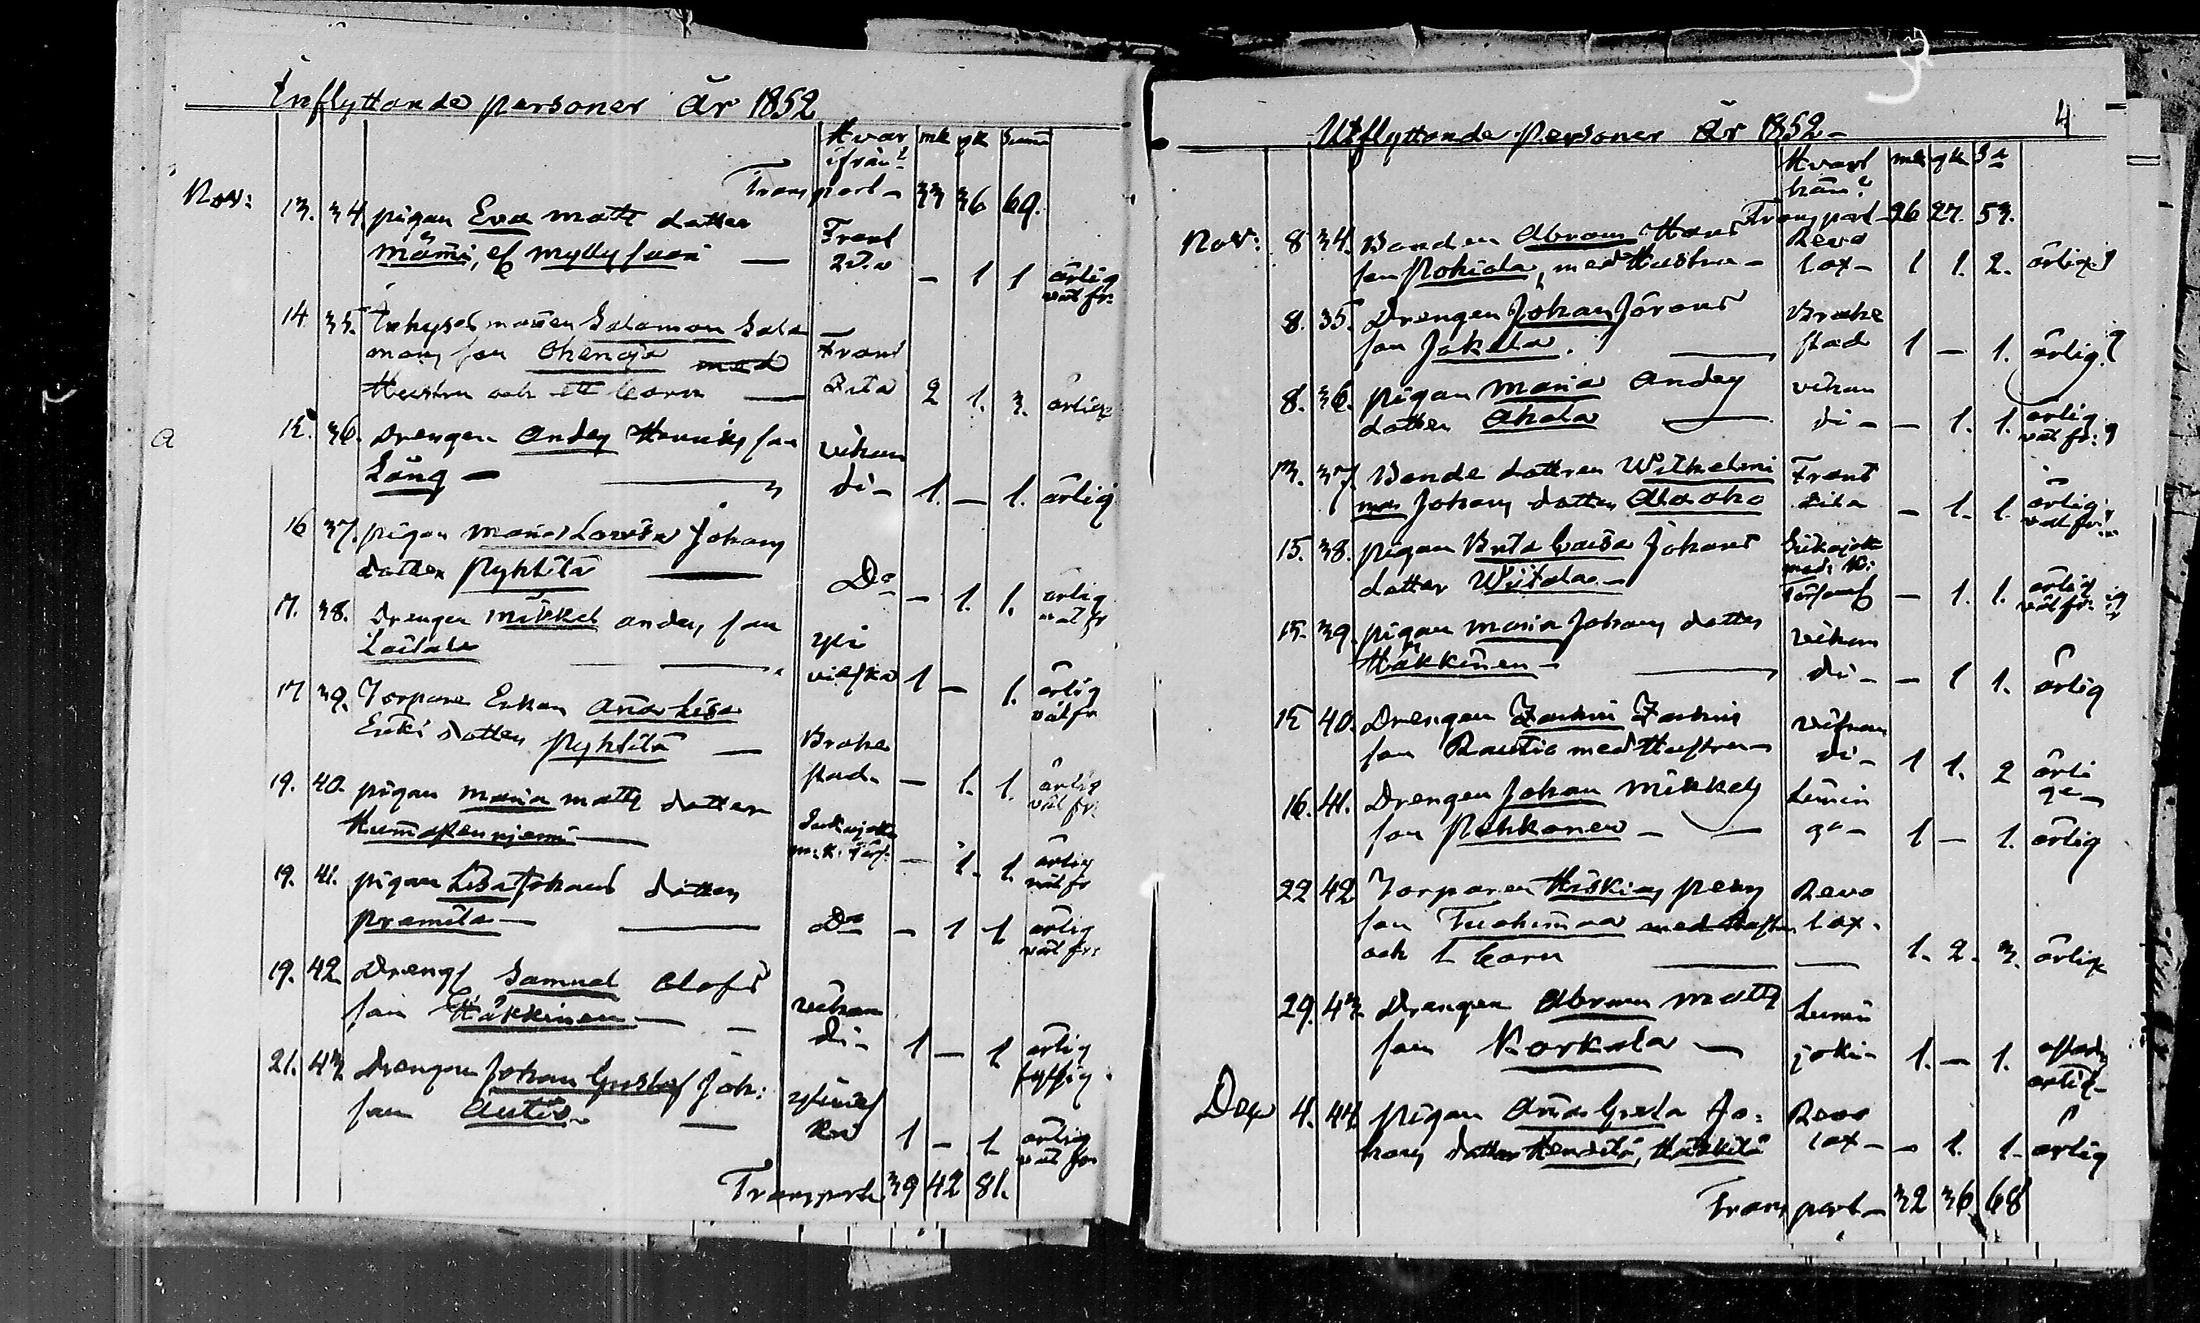 Inflyttande personer År 1852
Hvar ifrån? mk qk Sum
Transport - 33 36 69.
Nov: 13. 34. pigan Eva Matts dotter Frant
Mämi, ef Myllysaari — zila - 1 1 ärlig
väl fr:
14 35. Inhyses mannen Salamon Salo
mons son Ohenoja med Frant
Hustru och ett barn — zila 2 1. 3. ärlige
15. 36. Drengen Anders Henriks son vihan
Lång — di - 1. - 1. ärlig
16 37. pigan Maria Lovisa Johans
dotter Pyhkitä — Do - 1. 1. ärlig
väl fr
17. 38. Drengen Mikkel Anders son ypi
Laitala — vieska 1 - 1. ärlig
väl fr
17 39. Torpare Enkan Anna Lisa
Eriks dotter Pyhkitä — Brahe
stad - - 1. 1. ärlig
väl fr:
19. 40. pigan Maria Matts dotter
Kumapenniemi — Siikajoki - 1. 1. ärlig
väl fr
19. 41. pigan Lisa Johans dotter
Pramila — Do - 1 1 ärlig
väl fr:
19. 42 Drengf Samuel Olofs
son Häkkinen — vihan
di - 1 - 1 ärlig
21. 43. Drengen Johan Gustaf Joh:
son Antio — 1 - 1 ärlig
väl fr
Transport 39 42 81.
4
Utflyttande Personer År 1852 -
Hvart hän? mk qk Sa
Transport - 26 27. 53.
Nov: 8 34. Bonden Abram Hans Revo
son Pohiola, med Hustru - lax - 1 1. 2. ärlige
8. 35. Drengen Johan Jörans Brahe
son Jokela. — stad 1 - 1. ärlig
8. 36. pigan Maria Anders vihan
dotter Ahola — di - - 1. 1. ärlig
väl fr:
13. 37. Bonde dottren Wilhelmi Frant
na Johans dotter Alaoho zila - 1. 1. ärlig
väl fr:
15. 38. pigan Brita Caisa Johans Siikajoki
dotter Wiitala - - 1. 1. ärlig
väl fr:
15. 39. pigan Maria Johans dotter vihan
Häkkinen - di - - 1 1. ärlig
15 40. Drengen Zachris Zachris vihan
son Rautio med Hustru - di - 1 1. 2 ärli
ge -
16. 41. Drengen Johan Mikkels Limin
son Pehkonen - ga - 1 - 1. ärlig
22 42 Torparen Hiskias Pehrs Revo
son Tuohimaa med Hustru lax.
och 1 barn — 1. 2. 3. ärlige
29. 43. Drengen Abram Matts Lumi
son Korkala — joki - 1. - 1.
ärlig -
Dec 4. 44 pigan Anna Greta Jo: Revo
hans dotter Hendilä, Häkkilä lax - - 1. 1. ärlig
Transport - 32 36 68